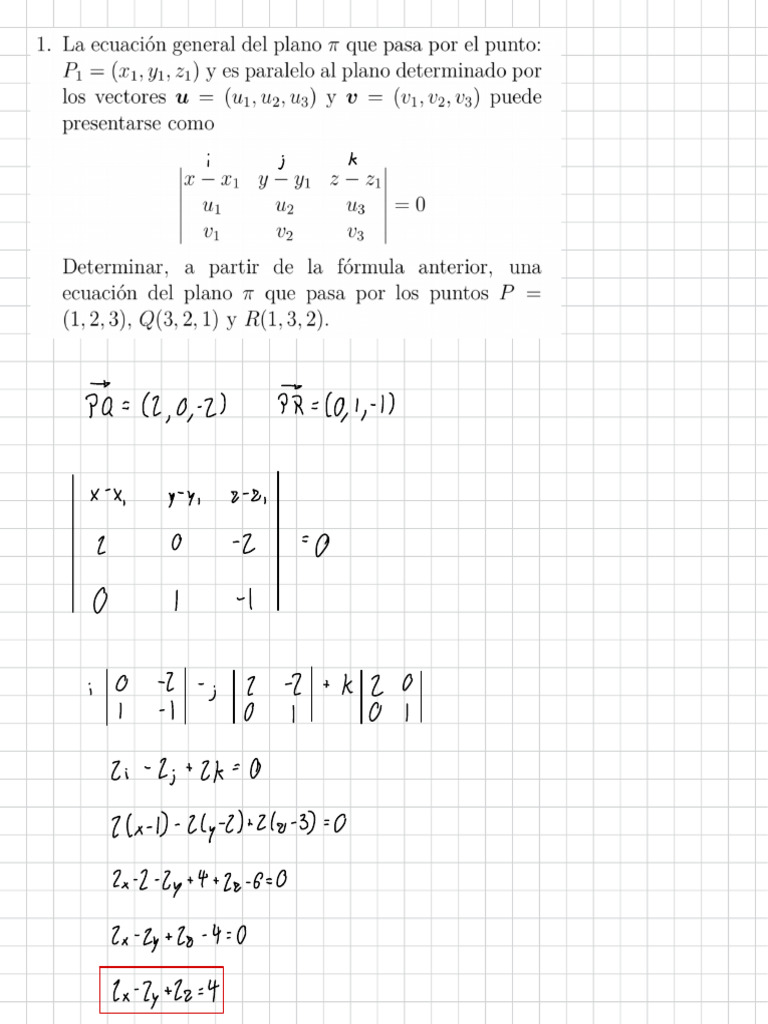 1. La ecuación general del plano π que pasa por el punto:
P₁ = (x₁, y₁, z₁) y es paralelo al plano determinado por
los vectores u = (u₁, u₂, u₃) y v = (v₁, v₂, v₃) puede
presentarse como
i j k
|x − x₁ y − y₁ z − z₁|
|u₁ u₂ u₃| = 0
|v₁ v₂ v₃|
Determinar, a partir de la fórmula anterior, una
ecuación del plano π que pasa por los puntos P =
(1, 2, 3), Q(3, 2, 1) y R(1, 3, 2).
PQ = (2, 0, -2) PR = (0, 1, -1)
|x-x₁ y-y₁ z-z₁|
|2 0 -2| = 0
|0 1 -1|
i |0 -2| - j |2 -2| + k |2 0|
|1 -1| |0 1| |0 1|
2i - 2j + 2k = 0
2(x-1) - 2(y-2) + 2(z-3) = 0
2x - 2 - 2y + 4 + 2z - 6 = 0
2x - 2y + 2z - 4 = 0
2x - 2y + 2z = 4